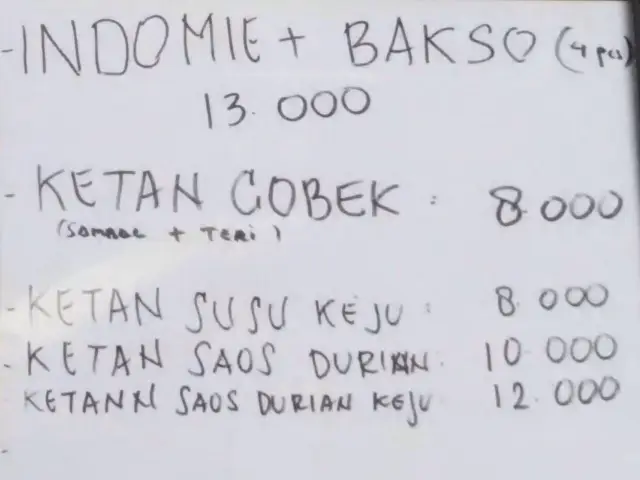 - INDOMIE + BAKSO (4 pcs)
13.000
- KETAN COBEK : 8.000
+ TERI)
- KETAN SUSU KEJU : 8.000
- KETAN SAOS DURIAN. 10 000
KETANN SAOS DURIAN KEJU 12.000
-